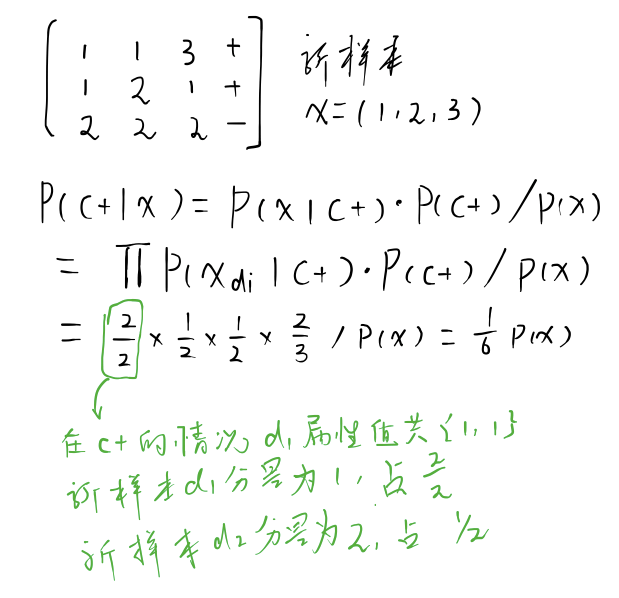 1 1 3 +
新样本
1 2 1 +
x=(1,2,3)
2 2 2 -
P(C+|x)=P(x|C+)·P(C+)/P(x)
= ∏P(x_di|C+)·P(C+)/P(x)
= 2/2 × 1/2 × 1/2 × 2/3 / P(x) = 1/6 P(x)
在C+的情况 d1 属性值共{1,1}
新样本d1分量为1,占 2/2
新样本d2分量为2,占 1/2